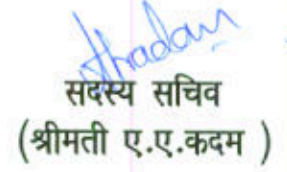 सदस्य सचिव
(श्रीमती ए.ए.कदम )